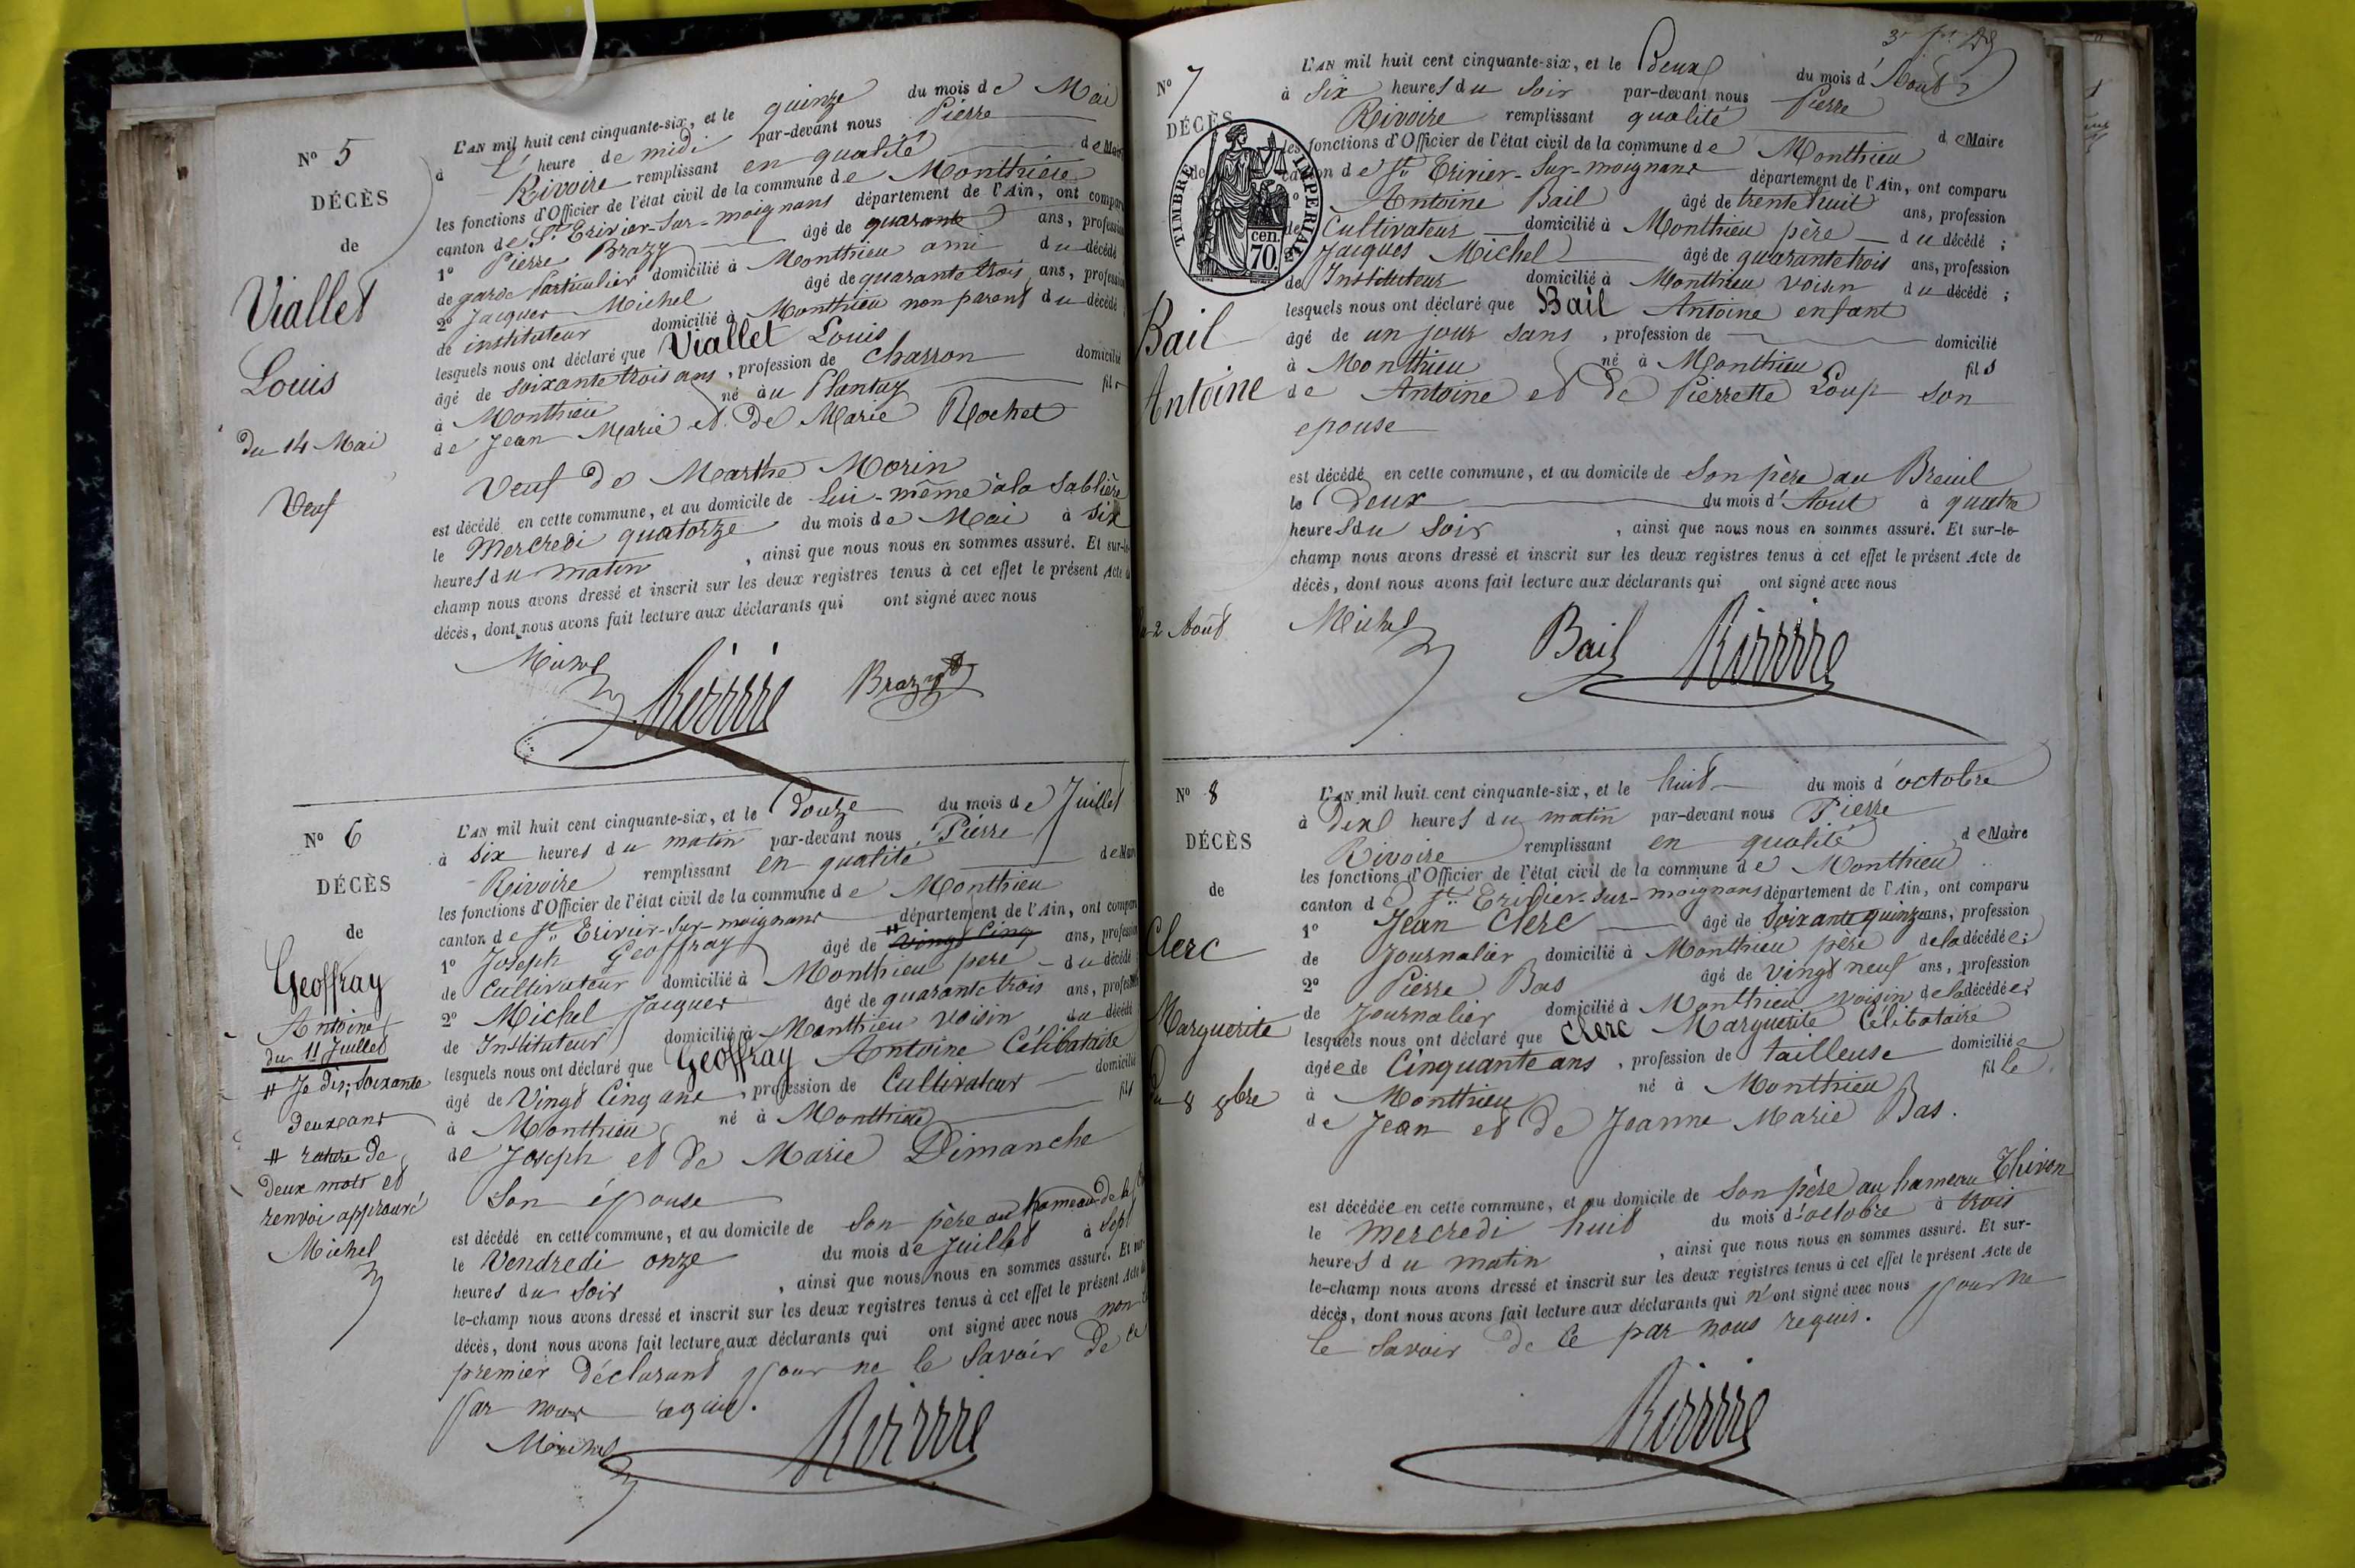 N° 5
DÉCÈS
de
Viallet
Louis
du 14 Mai
Veuf
L'AN mil huit cent cinquante-six, et le quinze du mois de Mai
à heure de midi par-devant nous Pierre
Rivoire remplissant en qualité de Maire
les fonctions d'Officier de l'état civil de la commune de Monthieu
canton de St Trivier-Sur-moignans département de l'Ain, ont comparu
1° Pierre Brazy âgé de quarante ans, profession
de garde particulier domicilié à Monthieu ami du décédé
2° Jacques Michel âgé de quarante trois ans, profession
de instituteur domicilié à Monthieu non parent du décédé
lesquels nous ont déclaré que Viallet Louis
âgé de soixante trois ans, profession de charron domicilié
à Monthieu né au Plantay fils
de Jean Marie et de Marie Rochet
Veuf de Marthe Morin
est décédé en cette commune, et au domicile de Lui-même à la Sablière
le Mercredi quatorze du mois de Mai à six
heures du matin, ainsi que nous nous en sommes assuré. Et sur-le-
champ nous avons dressé et inscrit sur les deux registres tenus à cet effet le présent Acte de
décès, dont nous avons fait lecture aux déclarants qui ont signé avec nous
Michel Rivoire Brazy
N° 6
DÉCÈS
de
Geoffray
Antoine
du 11 Juillet
# Je dis; soixante
deux ans
# rature de
deux mots et
renvoi approuvé
Michel
L'AN mil huit cent cinquante-six, et le Douze du mois de Juillet
à six heures du matin par-devant nous Pierre
Rivoire remplissant en qualité de Maire
les fonctions d'Officier de l'état civil de la commune de Monthieu
canton de St Trivier-Sur-moignans département de l'Ain, ont comparu
1° Joseph Geoffray âgé de # Vingt Cinq ans, profession
de Cultivateur domicilié à Monthieu père du décédé
2° Michel Jacques âgé de quarante trois ans, profession
de Instituteur domicilié à Monthieu voisin du décédé
lesquels nous ont déclaré que Geoffray Antoine Célibataire
âgé de Vingt Cinq ans, profession de Cultivateur domicilié
à Monthieu né à Monthieu fils
de Joseph et de Marie Dimanche
Son épouse
est décédé en cette commune, et au domicile de Son père au hameau de la
le Vendredi onze du mois de Juillet à Sept
heures du Soir, ainsi que nous nous en sommes assuré. Et sur-
le-champ nous avons dressé et inscrit sur les deux registres tenus à cet effet le présent Acte de
décès, dont nous avons fait lecture aux déclarants qui ont signé avec nous non le
premier déclarant pour ne le Savoir de ce
par nous requis.
Michel Rivoire
N° 7
DÉCÈS
de
TIMBRE IMPERIAL
cen.
70.
Bail
Antoine
du 2 Août
L'AN mil huit cent cinquante-six, et le Deux du mois d'Août
à six heures du soir par-devant nous Pierre
Rivoire remplissant qualité de Maire
les fonctions d'Officier de l'état civil de la commune de Monthieu
canton de St Trivier-Sur-moignans département de l'Ain, ont comparu
1° Antoine Bail âgé de trente huit ans, profession
de Cultivateur domicilié à Monthieu père du décédé;
Jacques Michel âgé de quarante trois ans, profession
de Instituteur domicilié à Monthieu voisin du décédé;
lesquels nous ont déclaré que Bail Antoine enfant
âgé de un jour sans, profession de domicilié
à Monthieu né à Monthieu fils
de Antoine et de Pierrette Loup son
epouse
est décédé en cette commune, et au domicile de Son père au Breuil
le Deux du mois d'Aout à quatre
heures du Soir, ainsi que nous nous en sommes assuré. Et sur-le-
champ nous avons dressé et inscrit sur les deux registres tenus à cet effet le présent Acte de
décès, dont nous avons fait lecture aux déclarants qui ont signé avec nous
Michel Bail Rivoire
N° 8
DÉCÈS
de
Clerc
Marguerite
Du 8 8bre
L'AN mil huit cent cinquante-six, et le huit du mois d'octobre
à Dix heures du matin par-devant nous Pierre
Rivoire remplissant en qualité de Maire
les fonctions d'Officier de l'état civil de la commune de Monthieu
canton de St Trivier-Sur-moignans département de l'Ain, ont comparu
1° Jean Clerc âgé de Soixante quinze ans, profession
de Journalier domicilié à Monthieu père de la décédée;
2° Pierre Bas âgé de vingt neuf ans, profession
de Journalier domicilié à Monthieu voisin de la décédée;
lesquels nous ont déclaré que Clerc Marguerite Célibataire
âgée de Cinquante ans, profession de tailleuse domiciliée
à Monthieu né à Monthieu fille
de Jean et de Jeanne Marie Bas.
est décédée en cette commune, et au domicile de Son père au hameau Thivon
le mercredi huit du mois d'octobre à trois
heures du matin, ainsi que nous nous en sommes assuré. Et sur-
le-champ nous avons dressé et inscrit sur les deux registres tenus à cet effet le présent Acte de
décès, dont nous avons fait lecture aux déclarants qui n'ont signé avec nous pour ne
le Savoir de ce par nous requis.
Rivoire